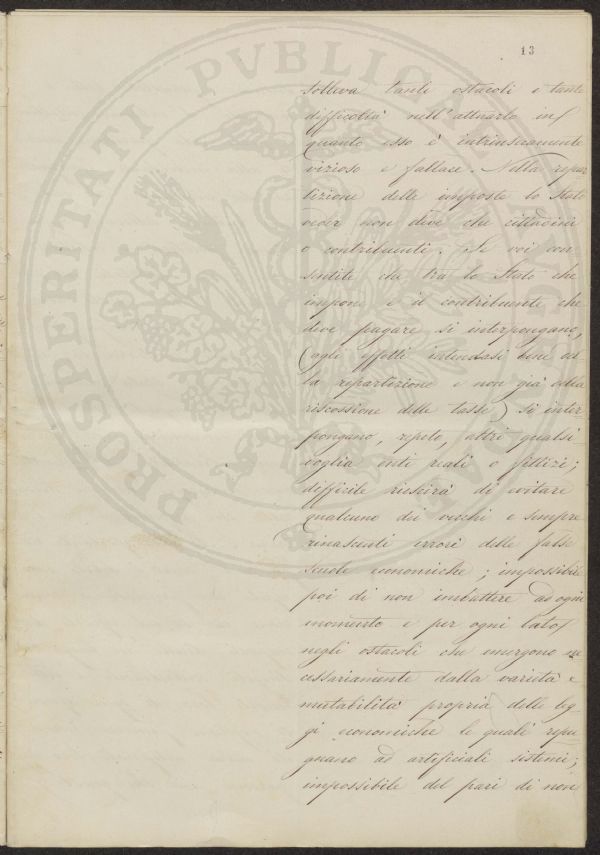 13
solleva tanti ostacoli e tante
difficoltà nell'attuarlo in
quanto esso è intrinsecamente
vizioso e fallace. Nella repar
tizione delle imposte lo Stato
veder non deve che cittadini
e contribuenti. Se voi con
sentite che tra lo Stato che
impone e il contribuente che
deve pagare si interpongano,
(agli effetti intendasi bene del
la repartizione e non già della
riscossione delle tasse) si inter
pongano, repeto, altri qualsi
voglia enti reali o fittizi;
difficile riuscirà di evitare
qualcuno dei vecchi e sempre
rinascenti errori delle false
scuole economiche; impossibile
poi di non imbattere ad ogni
momento e per ogni lato
negli ostacoli che emergono ne
cessariamente dalla varietà e
mutabilità propria delle leg
gi economiche le quali repu
gnano ad artificiali sistemi;
impossibile del pari di non
PROSPERITATI PVBLICAE